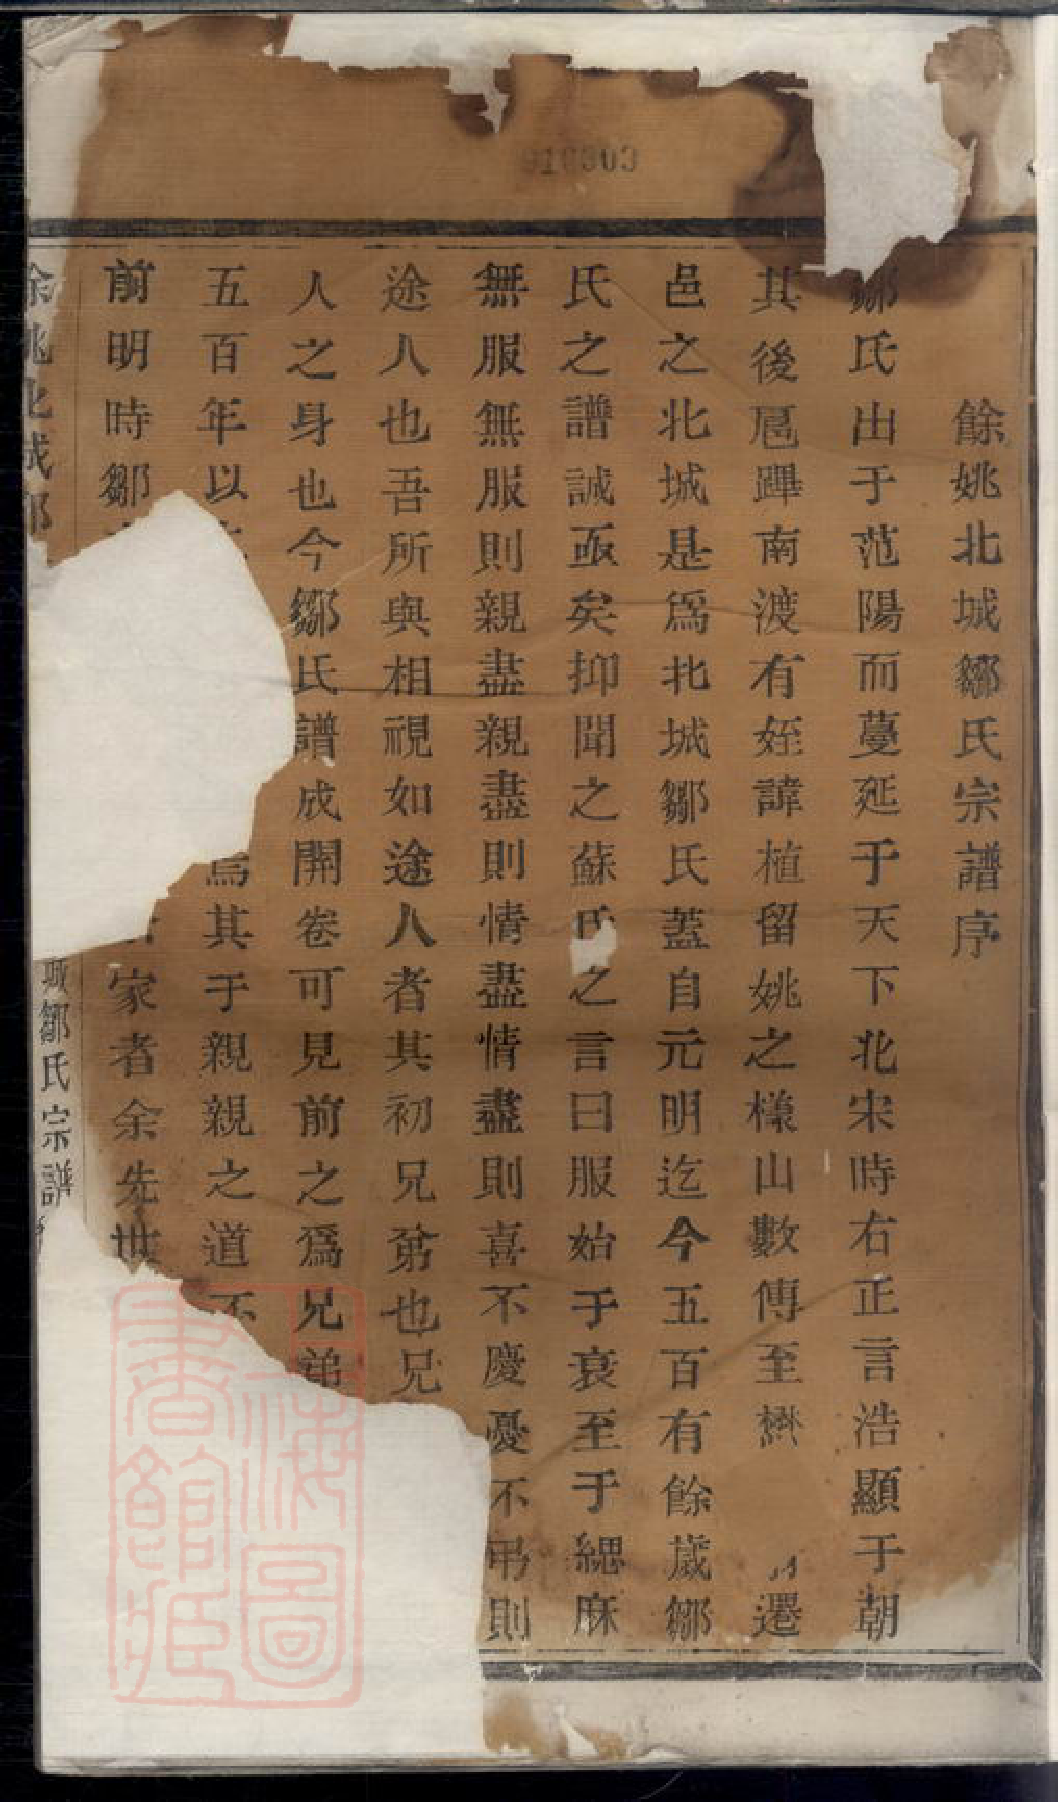 餘姚北城鄒氏宗譜序
鄒氏出于范陽而蔓延于天下北宋時右正言浩顯于朝
其後扈蹕南渡有姪諱植留姚之樣山數傳至懋遷
邑之北城是爲北城鄒氏蓋自元明迄今五百有餘歲鄒
氏之譜誠亟矣抑聞之蘇氏之言曰服始于衰至于緦麻
無服無服則親盡親盡則情盡情盡則喜不慶憂不弔則
途人也吾所與相視如途人者其初兄弟也兄
人之身也今鄒氏譜成開卷可見前之爲兄弟
五百年以焉其于親親之道不
前明時鄒家者余先世
余姚北城鄒
城鄒氏宗譜
910303
上海圖書館藏